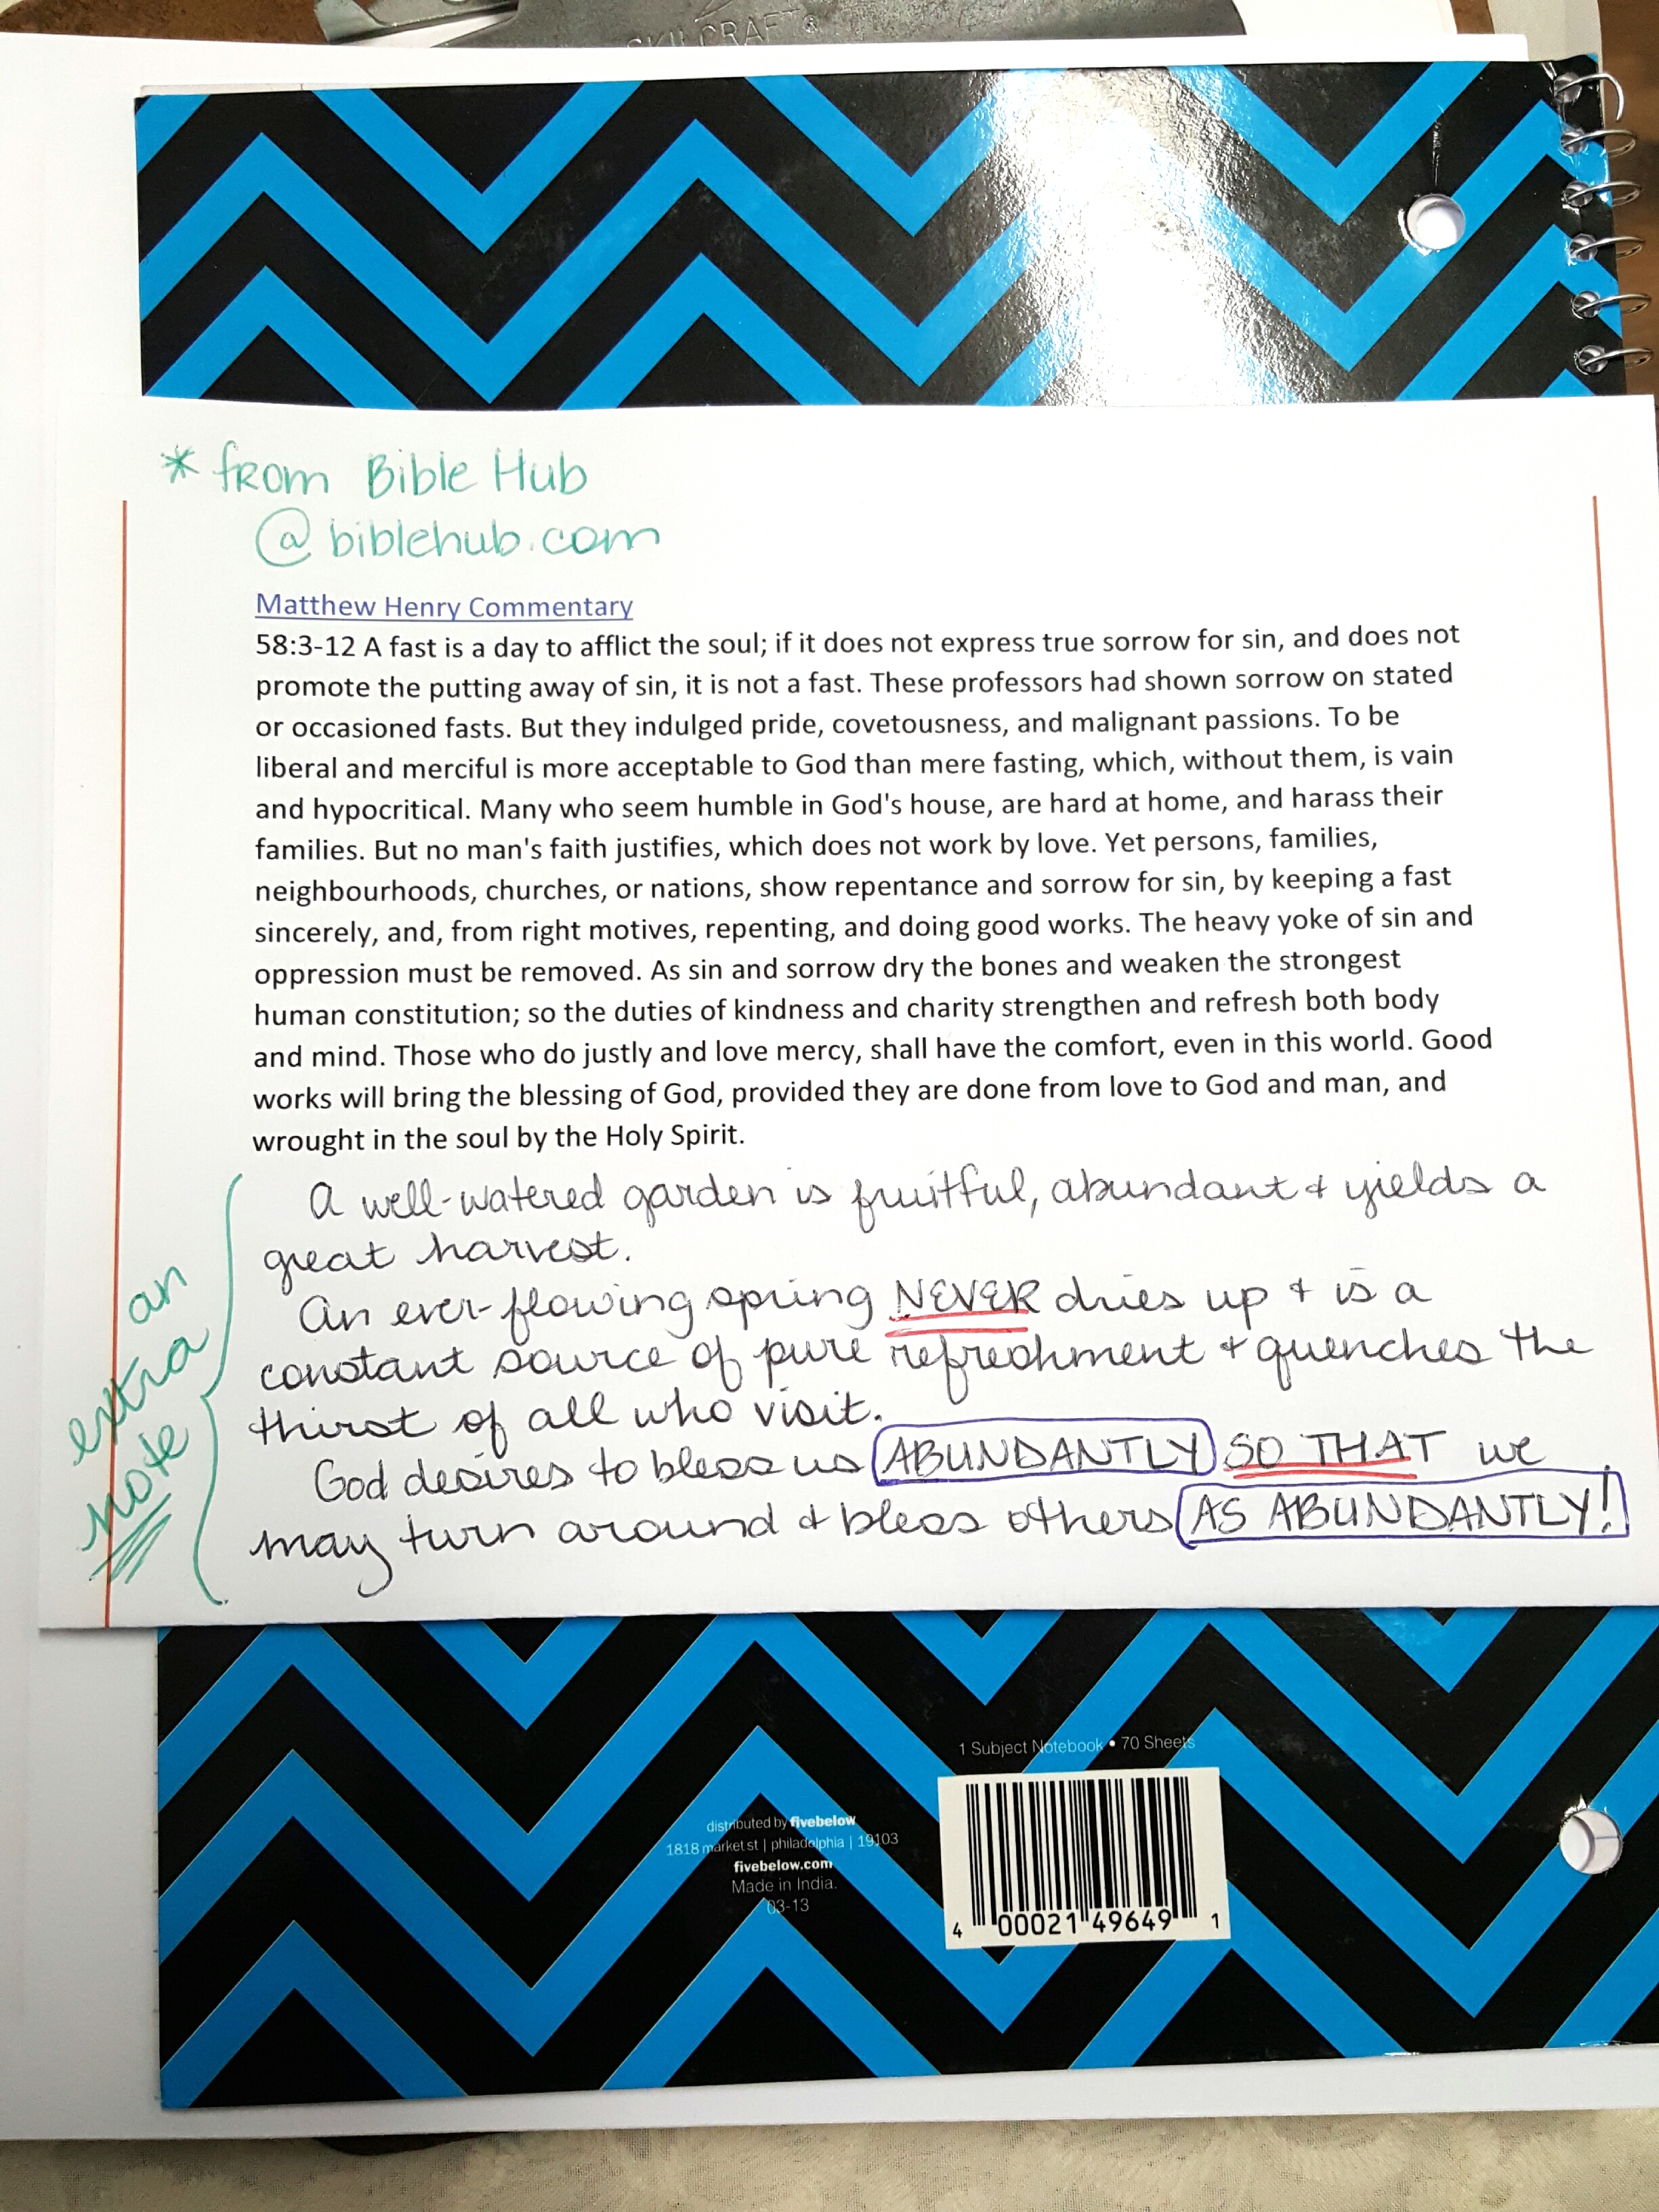 SKILCRAFT®
* from Bible Hub
@ biblehub.com
Matthew Henry Commentary
58:3-12 A fast is a day to afflict the soul; if it does not express true sorrow for sin, and does not
promote the putting away of sin, it is not a fast. These professors had shown sorrow on stated
or occasioned fasts. But they indulged pride, covetousness, and malignant passions. To be
liberal and merciful is more acceptable to God than mere fasting, which, without them, is vain
and hypocritical. Many who seem humble in God's house, are hard at home, and harass their
families. But no man's faith justifies, which does not work by love. Yet persons, families,
neighbourhoods, churches, or nations, show repentance and sorrow for sin, by keeping a fast
sincerely, and, from right motives, repenting, and doing good works. The heavy yoke of sin and
oppression must be removed. As sin and sorrow dry the bones and weaken the strongest
human constitution; so the duties of kindness and charity strengthen and refresh both body
and mind. Those who do justly and love mercy, shall have the comfort, even in this world. Good
works will bring the blessing of God, provided they are done from love to God and man, and
wrought in the soul by the Holy Spirit.
A well-watered garden is fruitful, abundant & yields a
great harvest.
An ever-flowing spring NEVER dries up & is a
constant source of pure refreshment & quenches the
thirst of all who visit.
God desires to bless us ABUNDANTLY SO THAT we
may turn around & bless others AS ABUNDANTLY!
an
extra
note
1 Subject Notebook • 70 Sheets
distributed by fivebelow
1818 market st | philadelphia | 19103
fivebelow.com
Made in India.
03-13
4 00021 49649 1